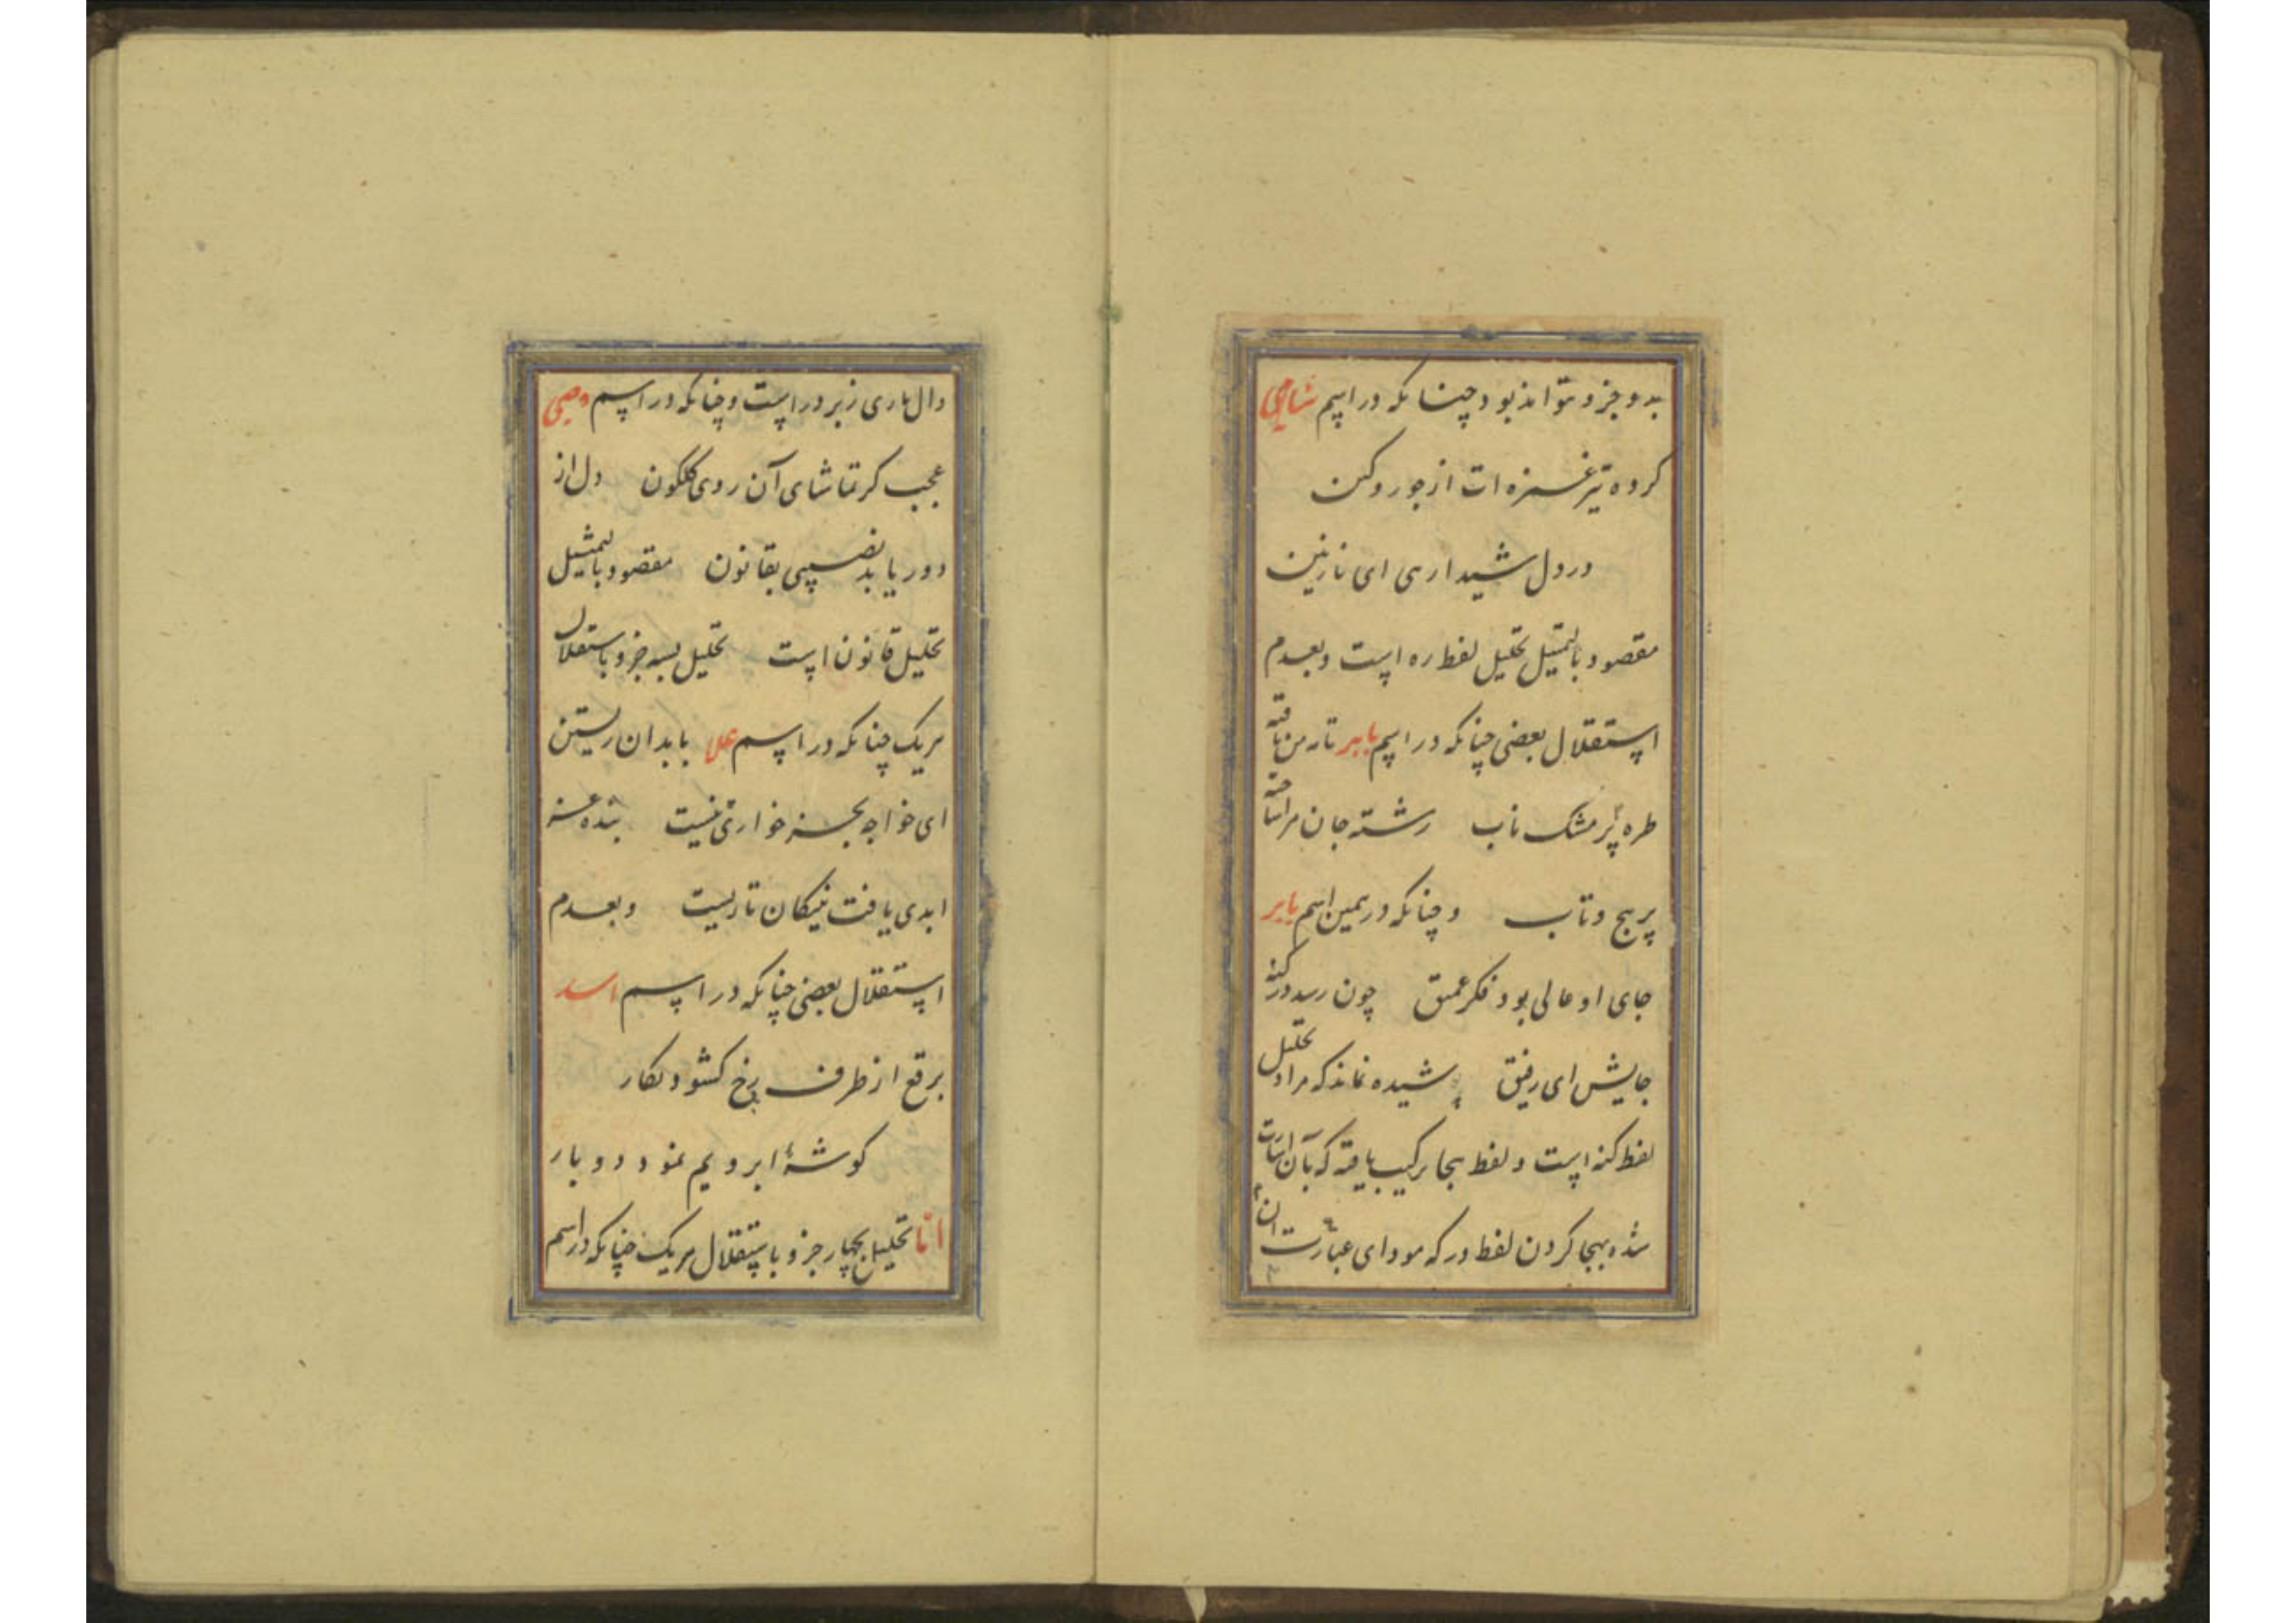 بدو جزو تواند بود چنانکه در اسم شاهی
کرده تیر غمزه ات از جور و کین
در دل شیدا رهی ای نازنین
مقصود بالتمثیل تحلیل لفظ ره است و بعدم
استقلال بعضی چنانکه در اسم بابر تا زمن تافته
طره پر مشک ناب رشته جان مرا ساخته
پر پیچ و تاب و چنانکه در همین اسم بابر
جای او عالی بود فکر عمیق چون رسد در کنه
جایش ای رفیق پوشیده نماند که مراد تحلیل
لفظ کنه است و لفظ بجا ترکیب یافته که بآن اشارت
شده بجا کردن لفظ در که مودای عبارت
دال باری زبر در است و چنانکه در اسم وصی
عجب کر تماشای آن روی کلکون دل از
دور یابد نصیبی بقانون مقصود بالتمثیل
تحلیل قانون است تحلیل بسه جزو باستقلال
هر یک چنانکه در اسم علا با بدان زیستن
ای خواجه بجز خواری نیست بنده عز
ابدی یافت بنیکان تا زیست و بعدم
استقلال بعضی چنانکه در اسم اسد
برقع از طرف رخ کشود نکار
کوشهٔ ابرویم نمود دو بار
اما تحلیل بچهار جزو باستقلال هر یک چنانکه در اسم